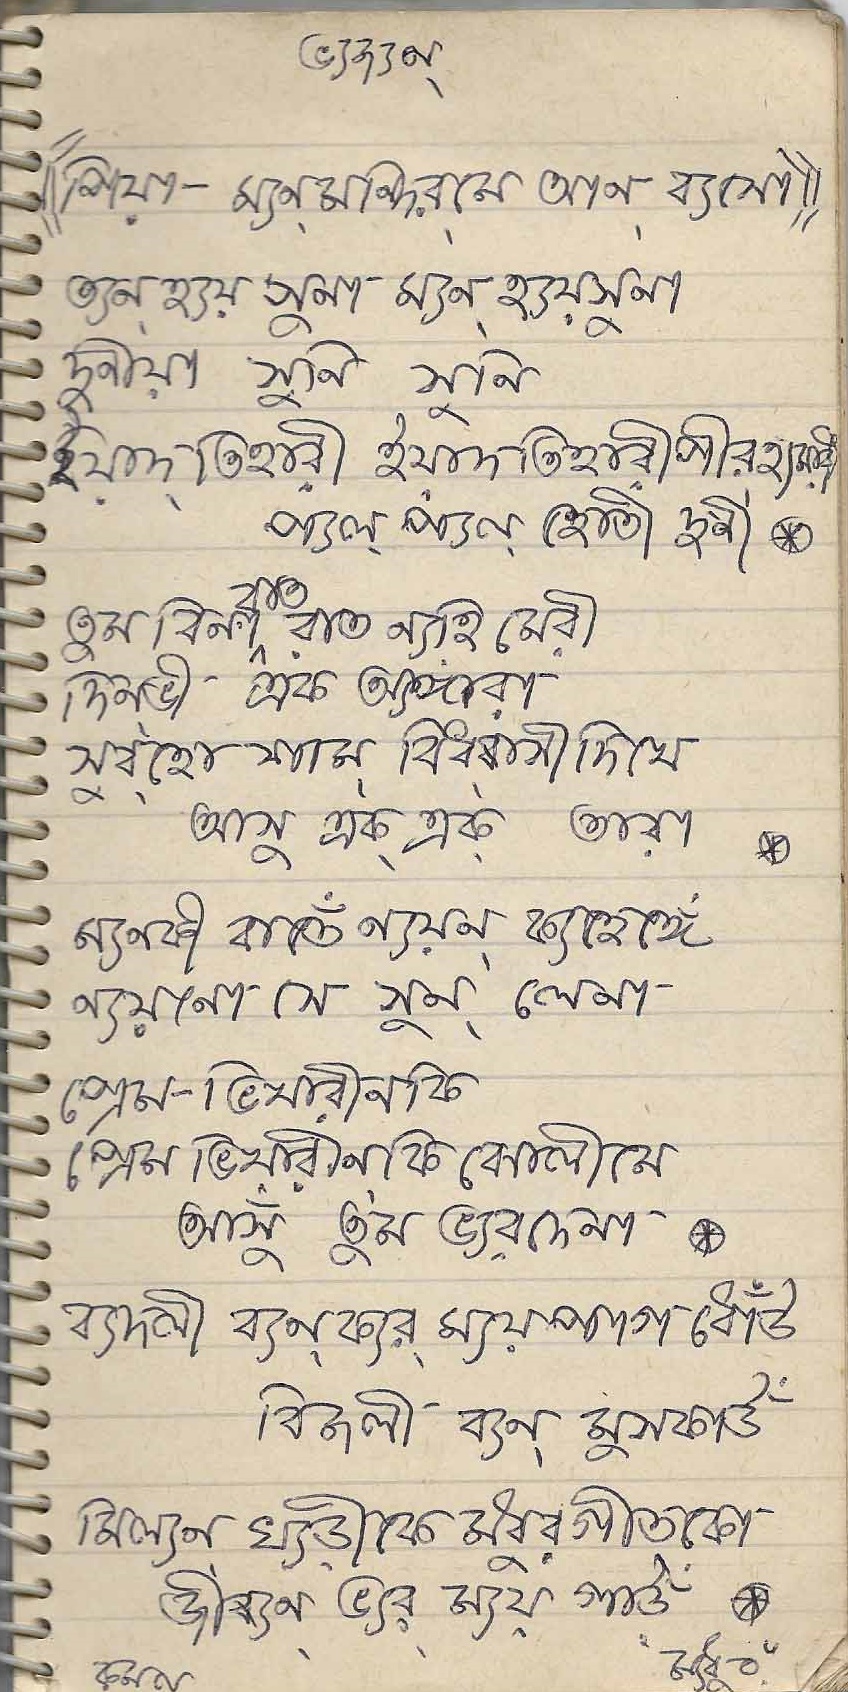 ভ্যজ্যন্
॥পিয়া- ম্যন্ মন্দির্ মে আন্ ব্যসো॥
ত্যন্ হ্যয় সুনা ম্যন্ হ্যয় সুনা
দুনীয়া সুনি সুনি
ইয়াদ্ তিহারী ইয়াদ তিহারী পীর্ হ্যমারী
প্যল্ প্যল্ হোতী দুনী
তুম বিনা রাত রাত ন্যহি মেরী
দিনভী এক অ্যঙ্গারা
সুব্ হো শাম্ বিরহাসী দিখে
আসু এক্ এক্ তারা
ম্যনকী বাতেঁ ন্যয়ন্ ক্যহেঙ্গেঁ
ন্যয়নো সে সুন্ লেনা
প্রেম-ভিখারীনকি
প্রেম ভিখারীন্ কি ঝোলীমে
আসুঁ তুম ভ্যরদেনা
ব্যদলী ব্যন্ ক্যর্ ম্যয় পাগ ধোঁউ
বিজলী ব্যন্ মুসকাউঁ
মিল্যন্ ঘ্যড়ীকে মধুর গীত্ কো
জীব্যন্ ভ্যর্ ম্যয়্ গাউঁ
কমল
"ম্যধুর"